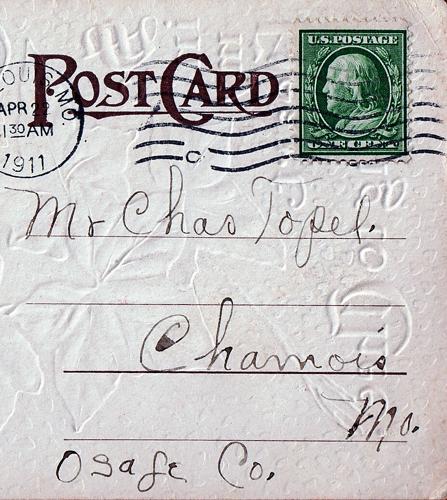 POST CARD
LOUIS, MO.
APR 22
1130AM
1911
C
U.S. POSTAGE
Mr Chas Topel.
Chamois
Mo.
Osage Co.